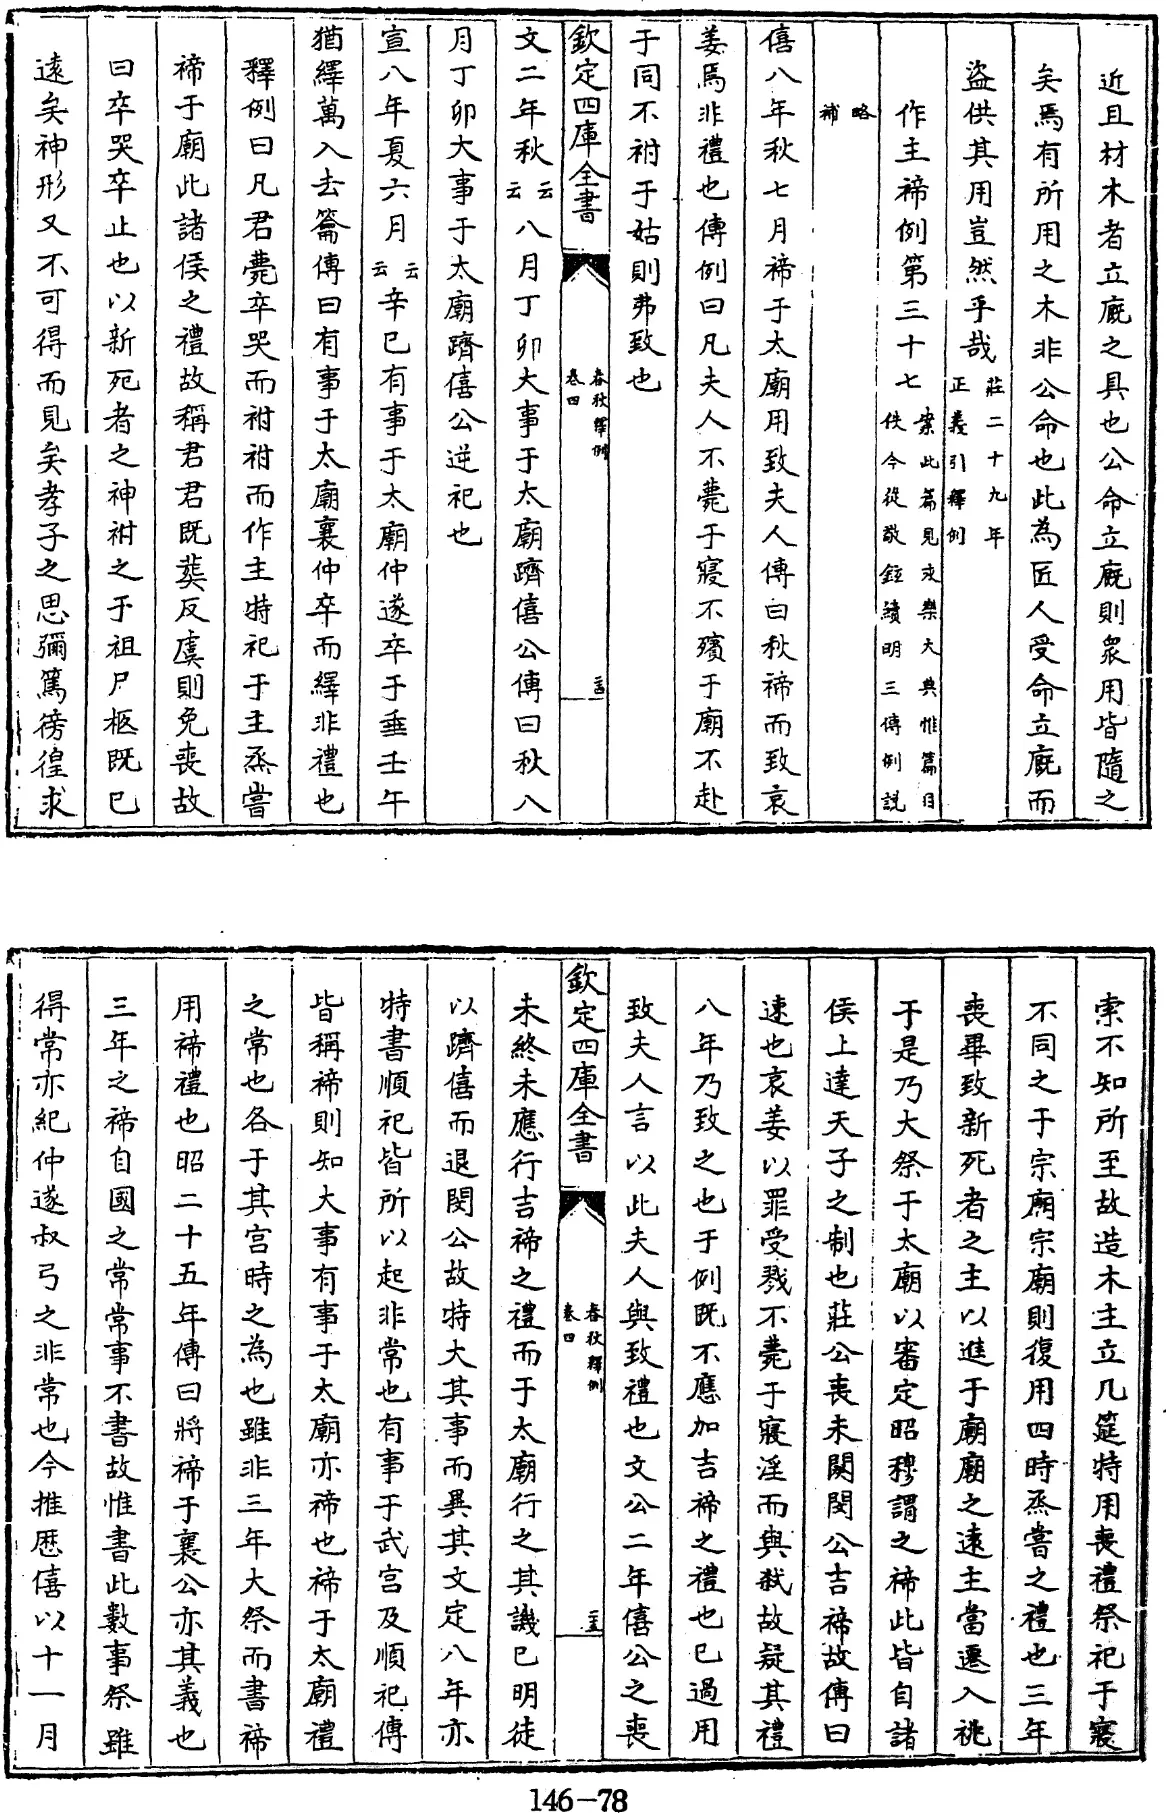 近且材木者立廐之具也公命立廐則衆用皆隨之
矣焉有所用之木非公命也此為匠人受命立廐而
盜供其用豈然乎哉莊二十九年正義引釋例
作主禘例第三十七案此篇見永樂大典惟篇目佚今從敬鉉續明三傳例説
略補
僖八年秋七月禘于太廟用致夫人傳曰秋禘而致哀
姜焉非禮也傳例曰凡夫人不薨于寢不殯于廟不赴
于同不祔于姑則弗致也
欽定四庫全書
春秋釋例
卷四
文二年秋云云八月丁卯大事于太廟躋僖公傳曰秋八
月丁卯大事于太廟躋僖公逆祀也
宣八年夏六月云云辛巳有事于太廟仲遂卒于垂壬午
猶繹萬入去籥傳曰有事于太廟襄仲卒而繹非禮也
釋例曰凡君薨卒哭而祔祔而作主特祀于主烝嘗
禘于廟此諸侯之禮故稱君君既葬反虞則免喪故
曰卒哭卒止也以新死者之神祔之于祖尸柩既已
遠矣神形又不可得而見矣孝子之思彌篤徬徨求
索不知所至故造木主立几筵特用喪禮祭祀于寢
不同之于宗廟宗廟則復用四時烝嘗之禮也三年
喪畢致新死者之主以進于廟廟之遠主當遷入祧
于是乃大祭于太廟以審定昭穆謂之禘此皆自諸
侯上達天子之制也莊公喪未闋閔公吉禘故傳曰
速也哀姜以罪受戮不薨于寢淫而與弒故疑其禮
八年乃致之也于例既不應加吉禘之禮也已過用
致夫人言以此夫人與致禮也文公二年僖公之喪
欽定四庫全書
春秋釋例
卷四
未終未應行吉禘之禮而于太廟行之其譏已明徒
以躋僖而退閔公故特大其事而異其文定八年亦
特書順祀皆所以起非常也有事于武宮及順祀傳
皆稱禘則知大事有事于太廟亦禘也禘于太廟禮
之常也各于其宮時之為也雖非三年大祭而書禘
用禘禮也昭二十五年傳曰將禘于襄公亦其義也
三年之禘自國之常常事不書故惟書此數事祭雖
得常亦紀仲遂叔弓之非常也今推歷僖以十一月
146-78